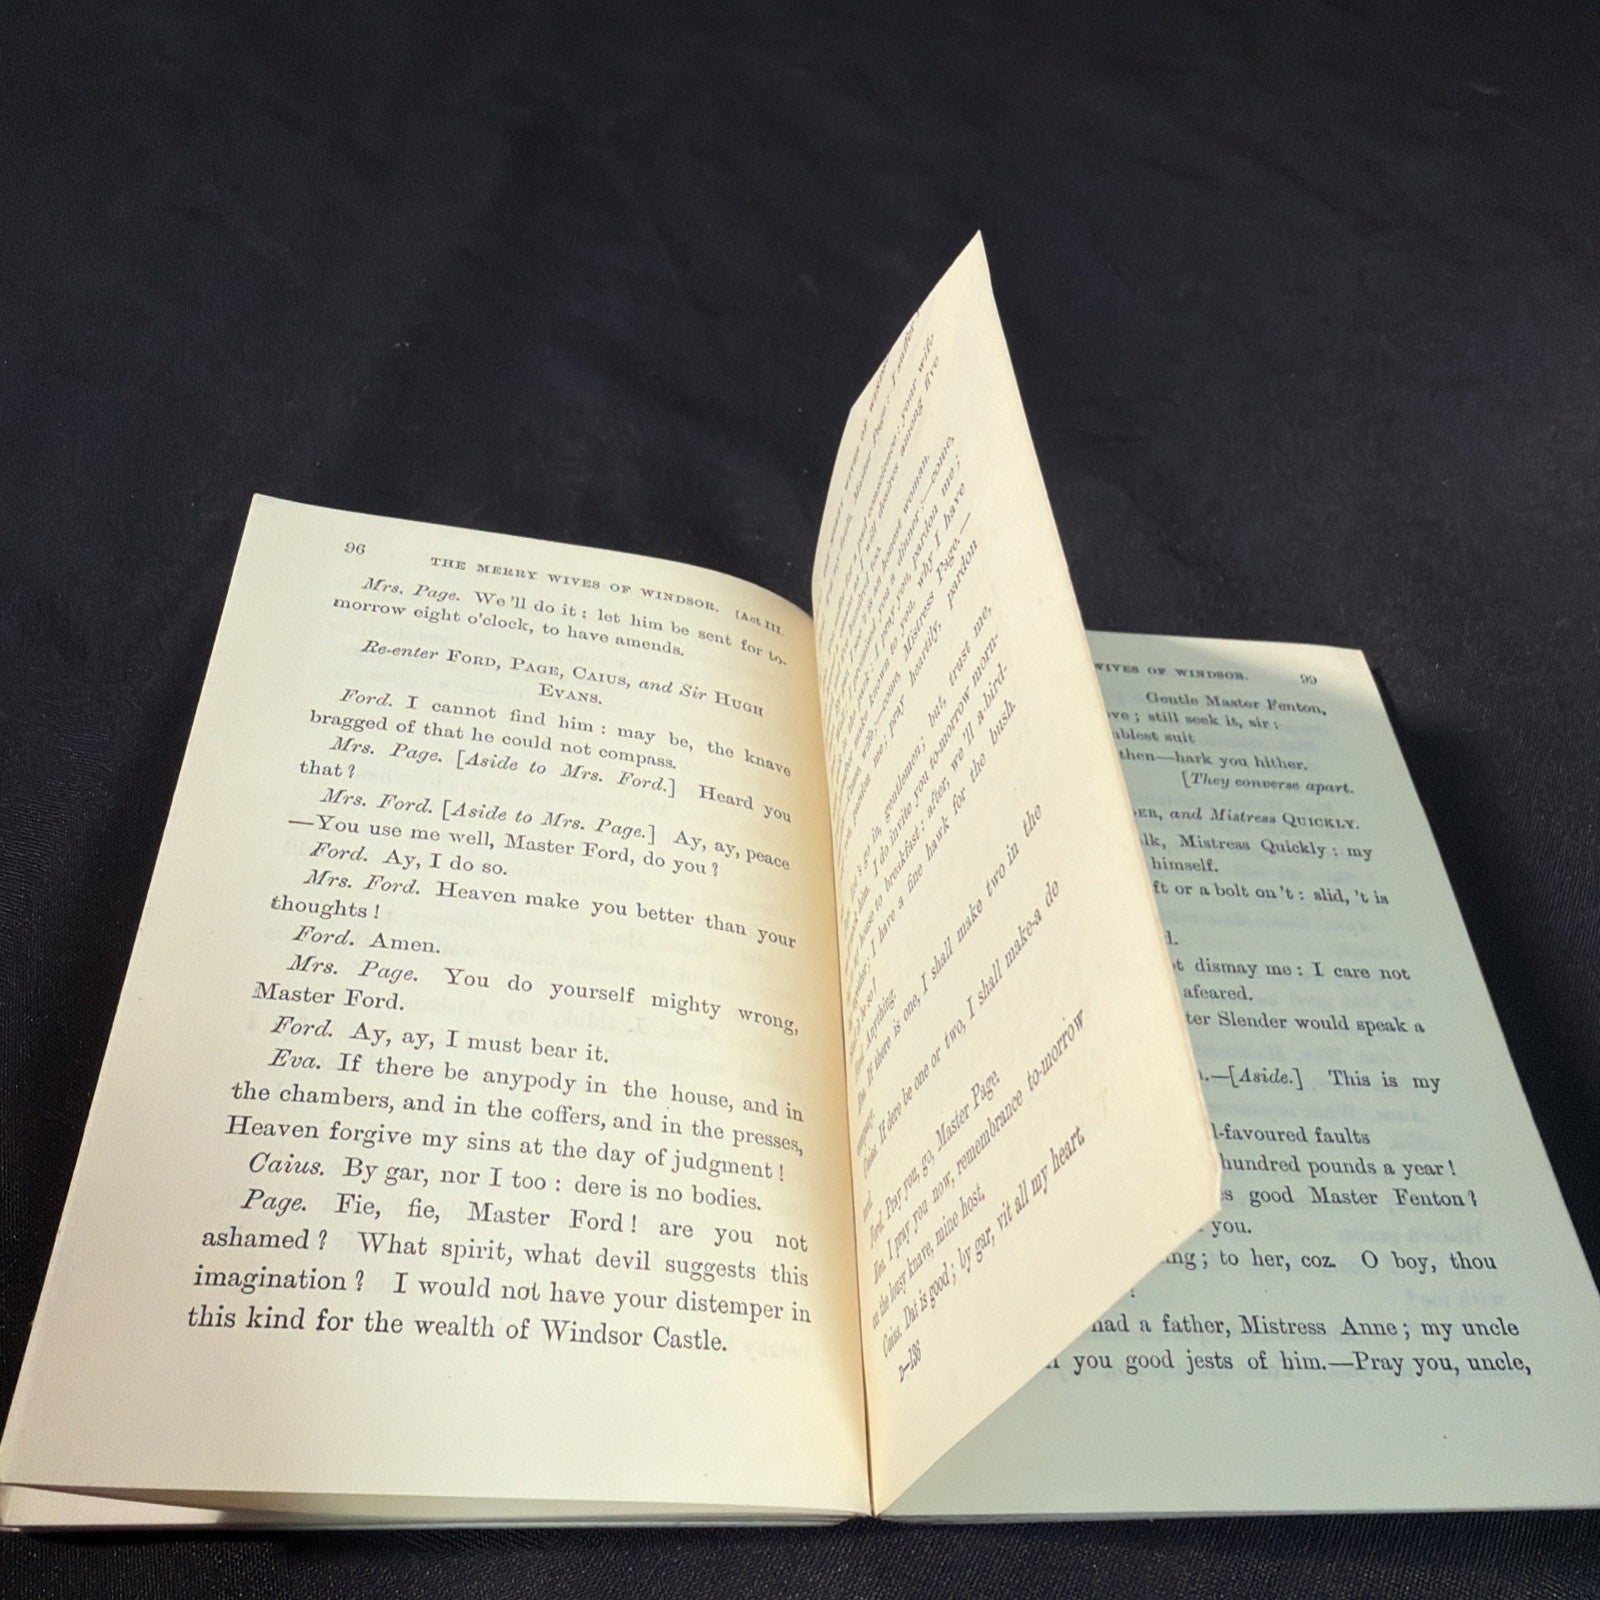 96
THE MERRY WIVES OF WINDSOR. [Act III.
Mrs. Page. We'll do it: let him be sent for to-
morrow eight o'clock, to have amends.
Re-enter FORD, PAGE, CAIUS, and Sir HUGH
EVANS.
Ford. I cannot find him: may be, the knave
bragged of that he could not compass.
Mrs. Page. [Aside to Mrs. Ford.] Heard you
that?
Mrs. Ford. [Aside to Mrs. Page.] Ay, ay, peace
—You use me well, Master Ford, do you?
Ford. Ay, I do so.
Mrs. Ford. Heaven make you better than your
thoughts!
Ford. Amen.
Mrs. Page. You do yourself mighty wrong,
Master Ford.
Ford. Ay, ay, I must bear it.
Eva. If there be anypody in the house, and in
the chambers, and in the coffers, and in the presses,
Heaven forgive my sins at the day of judgment!
Caius. By gar, nor I too: dere is no bodies.
Page. Fie, fie, Master Ford! are you not
ashamed? What spirit, what devil suggests this
imagination? I would not have your distemper in
this kind for the wealth of Windsor Castle.
your wife
among five
honest woman.
dinner:—come,
I pray you, pardon me;
why I have
Mistress Page.—
pray heartily, pardon
go in, gentlemen; but, trust me,
I do invite you to-morrow morn-
house to breakfast; after, we'll a-bird-
I have a fine hawk for the bush.
be so?
Anything.
If there is one, I shall make two in the
company.
Caius. If dere be one or two, I shall make-a de
Ford. Pray you, go, Master Page.
Eva. I pray you now, remembrance to-morrow
on the lousy knave, mine host.
Caius. Dat is good; by gar, vit all my heart
D—138
WIVES OF WINDSOR. 99
Gentle Master Fenton,
; still seek it, sir:
suit
then—hark you hither.
[They converse apart.
and Mistress QUICKLY.
Mistress Quickly: my
himself.
or a bolt on't: slid, 't is
dismay me: I care not
afeared.
Slender would speak a
—[Aside.] This is my
-favoured faults
hundred pounds a year!
good Master Fenton?
you.
; to her, coz. O boy, thou
had a father, Mistress Anne; my uncle
you good jests of him.—Pray you, uncle,